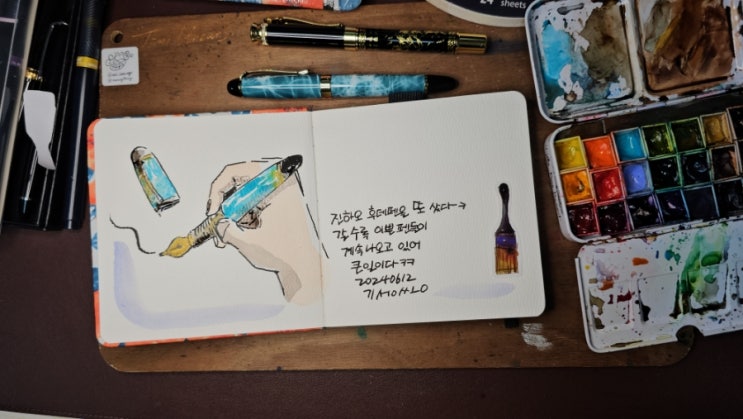 24
sheets
진하오 후데펜을 또 샀다ㅋ
갈수록 이쁜 펜들이
계속 나오고 있어
큰일이다ㅋㅋ
20240612